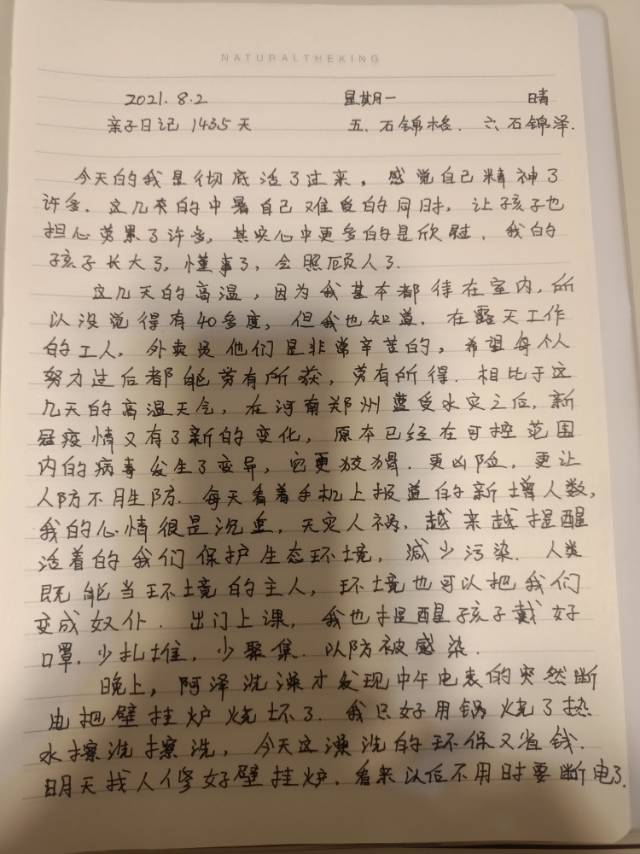 NATURALTHEKING
2021.8.2 星期一 晴
亲子日记 1435天 五、石锦格、六、石锦泽.
今天的我是彻底活了过来，感觉自己精神了
许多. 这几来的中暑自己难受的同时，让孩子也
担心劳累了许多，其实心中更多的是欣慰，我的
孩子长大了，懂事了，会照顾人了.
这几天的高温，因为我基本都待在室内，所
以没觉得有40多度，但我也知道，在露天工作
的工人，外卖员他们是非常辛苦的，希望每个人
努力过后都能劳有所获，劳有所得. 相比于这
几天的高温天气，在河南郑州遭受水灾之后，新
冠疫情又有了新的变化，原本已经在可控范围
内的病毒发生了变异，它更狡猾. 更凶险，更让
人防不胜防. 每天看着手机上报道的新增人数，
我的心情很是沉重，天灾人祸，越来越提醒
活着的我们保护生态环境，减少污染. 人类
既能当环境的主人，环境也可以把我们
变成奴仆. 出门上课，我也提醒孩子戴好
口罩. 少扎堆，少聚集. 以防被感染.
晚上，阿泽洗澡才发现中午电表的突然断
电把壁挂炉烧坏了. 我只好用锅烧了热
水擦洗擦洗，今天这澡洗的环保又省钱.
明天找人修好壁挂炉. 看来以后不用时要断电了.